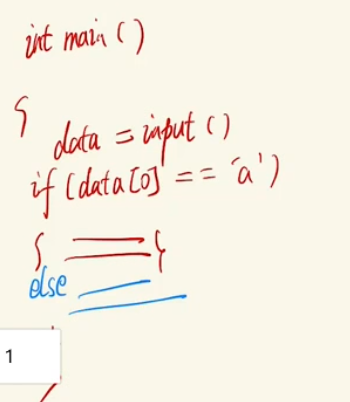 int main ()
{
data = input ()
if (data[0] == 'a')
{ }
else
1